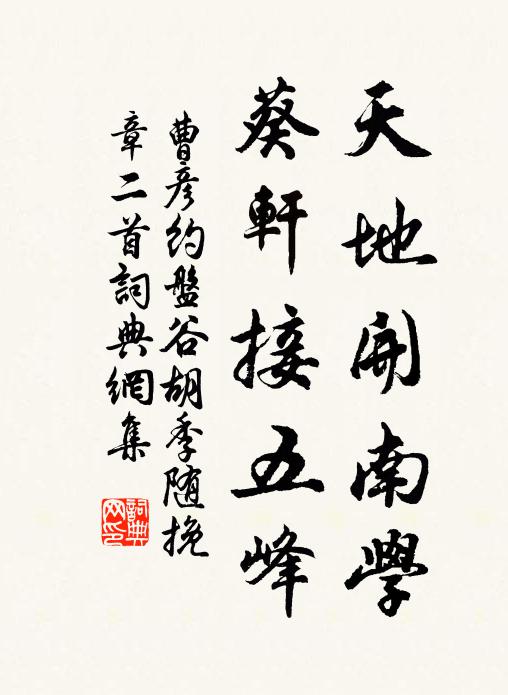 天地開南學
葵軒接五峰
曹彥約盤谷胡季随挽
章二首詞典網集
詞典网印